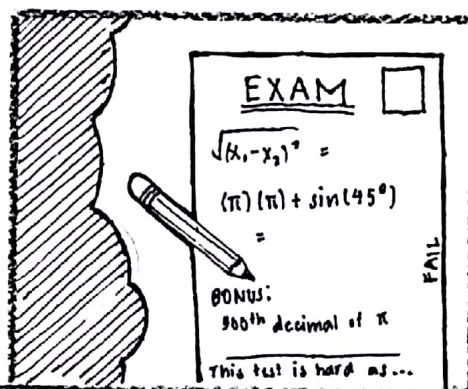 EXAM
√(x₁-x₂)² =
(π)(π) + sin(45°)
=
FAIL
BONUS:
900th decimal of π
This test is hard as...